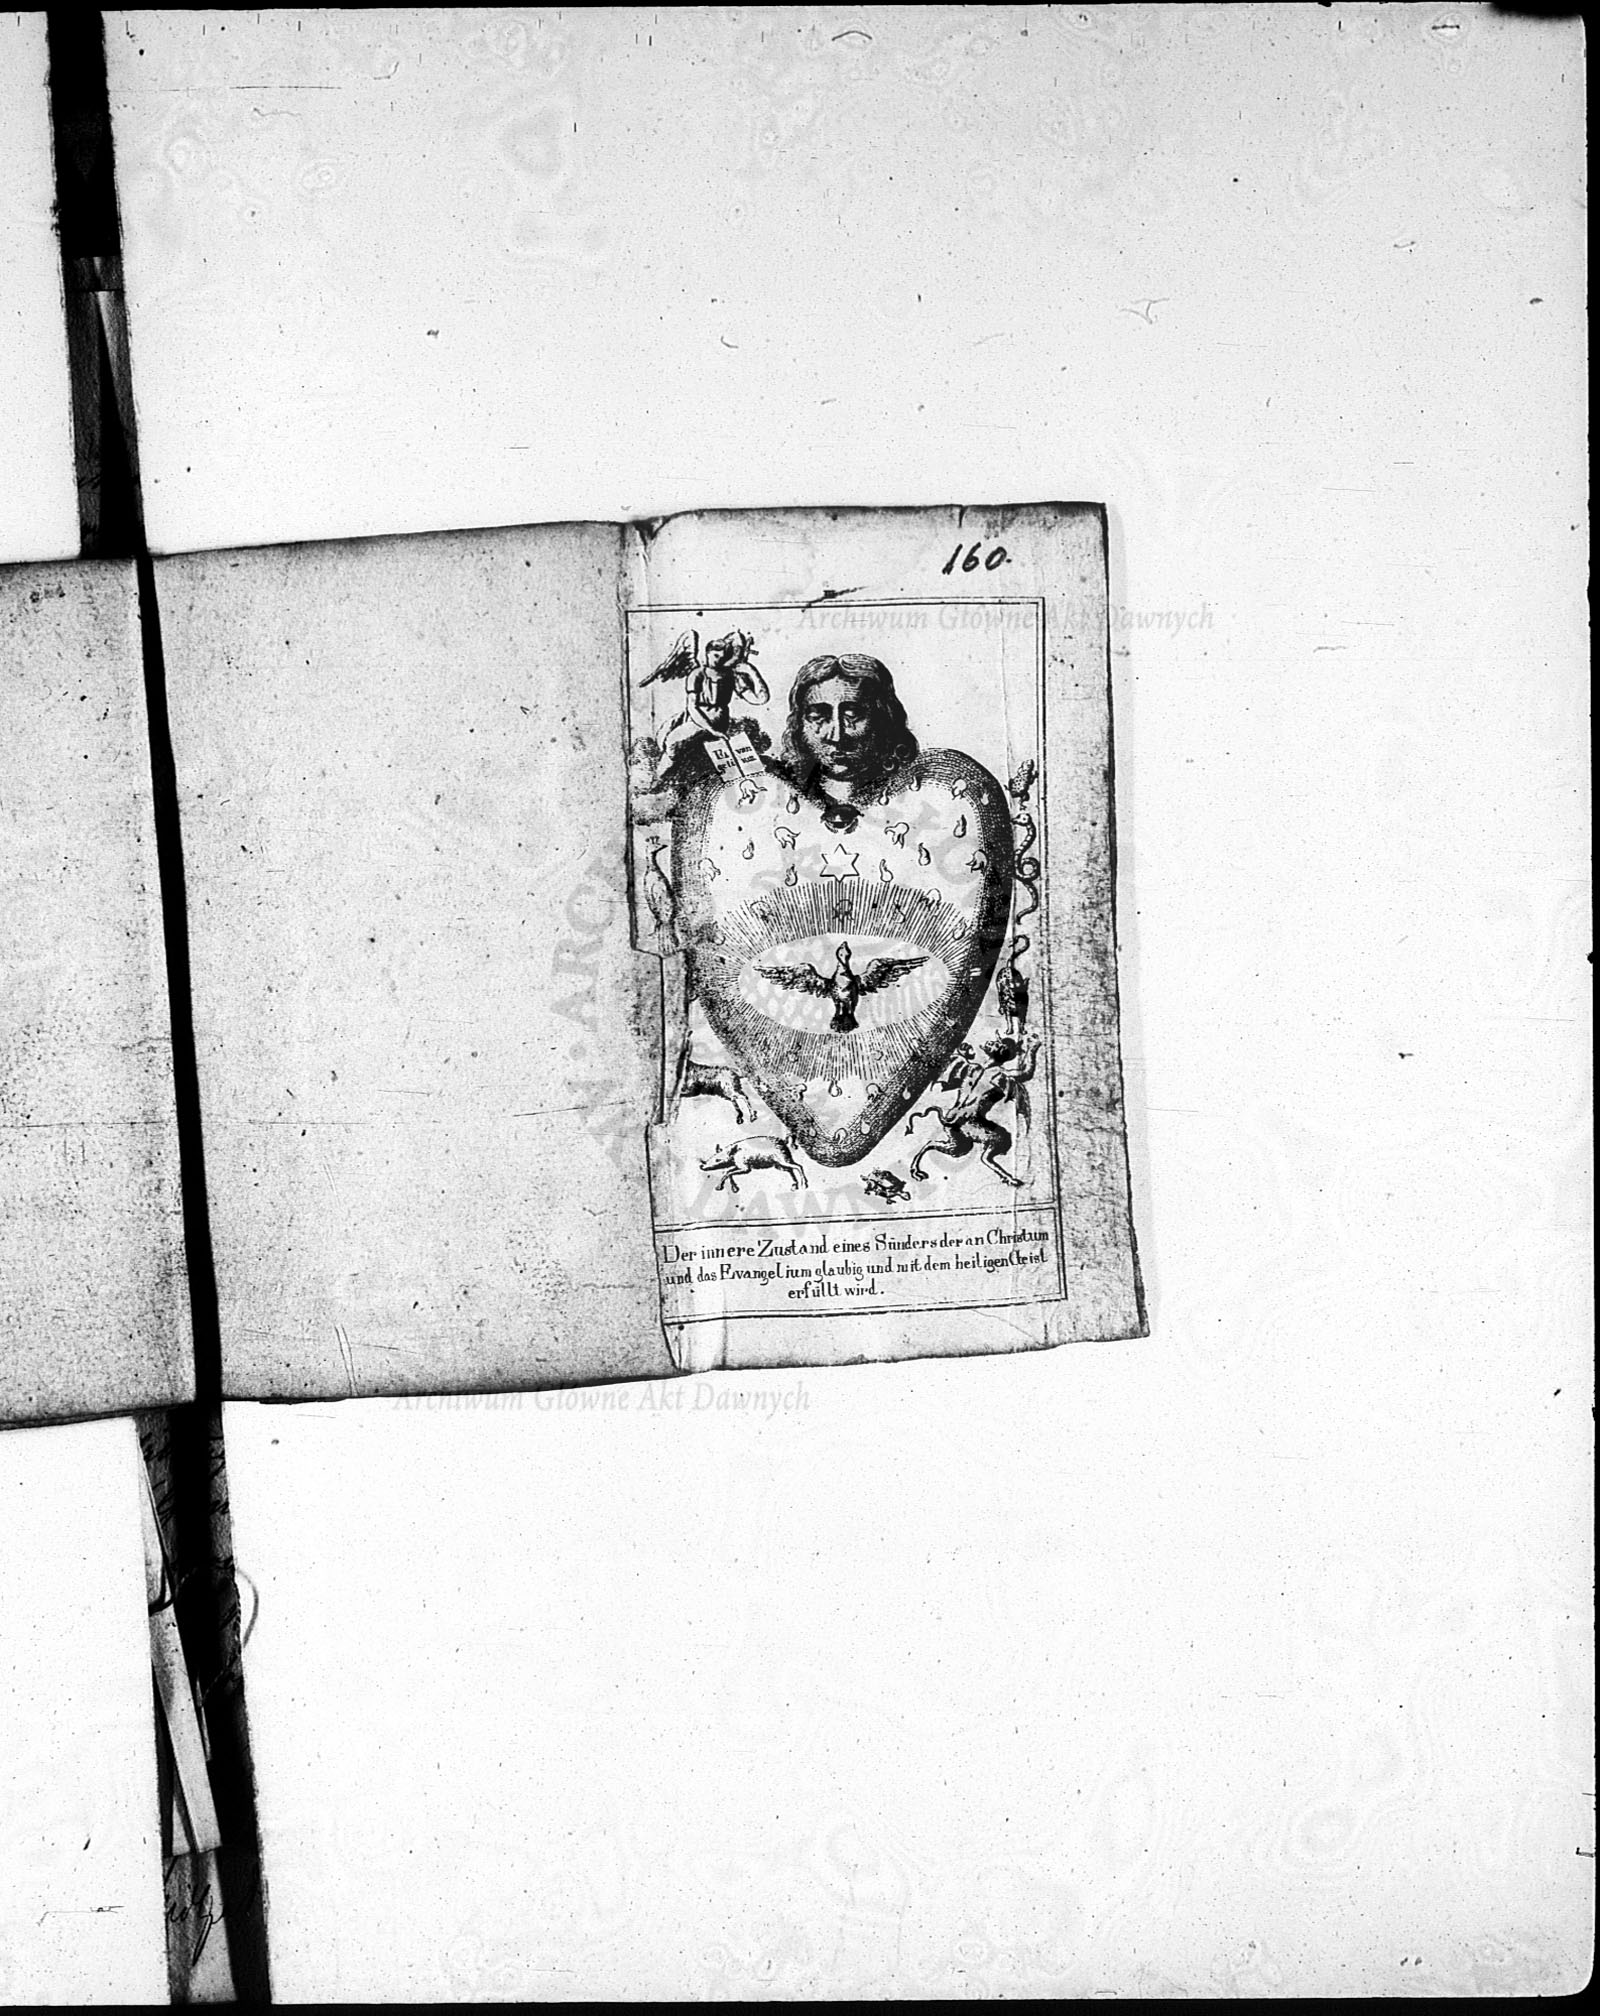 160.
Archiwum Główne Akt Dawnych
Der innere Zustand eines Sünders der an Christum
und das Evangelium glaubig und mit dem heiligen Geist
erfüllt wird.
Archiwum Główne Akt Dawnych